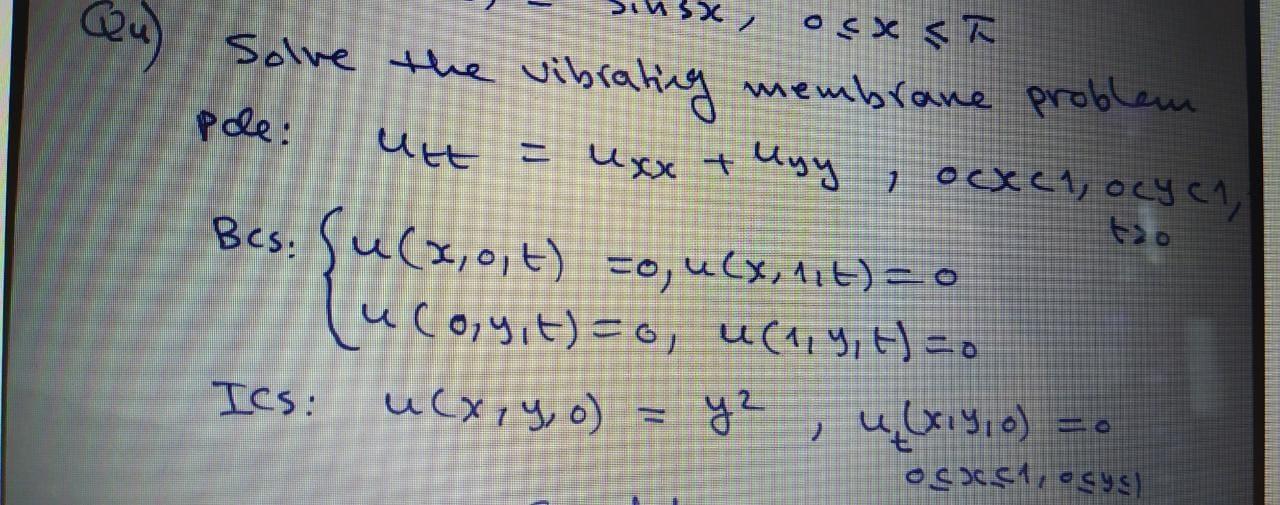 = sin 5x, 0 ≤ x ≤ π
Q4) Solve the vibrating membrane problem
pde: u_tt = u_xx + u_yy, 0<x<1, 0<y<1,
t>0
BCs: { u(x,0,t) =0, u(x,1,t)=0
u(0,y,t)=0, u(1,y,t)=0
ICs: u(x,y,0) = y², u_t(x,y,0) =0
0≤x≤1, 0≤y≤1